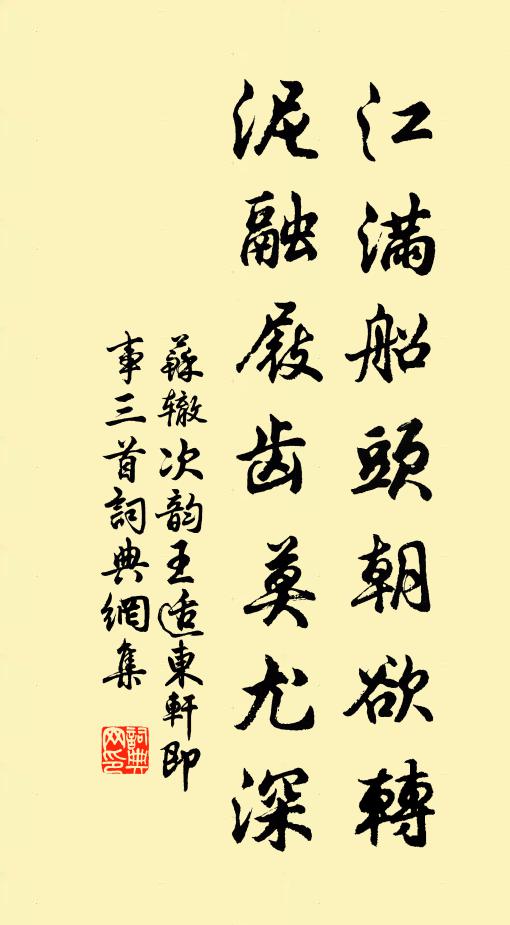 江满船頭朝欲轉
泥融屐齿莫尤深
蘇辙次韵王适東軒即
事三首詞典網集
詞典网印